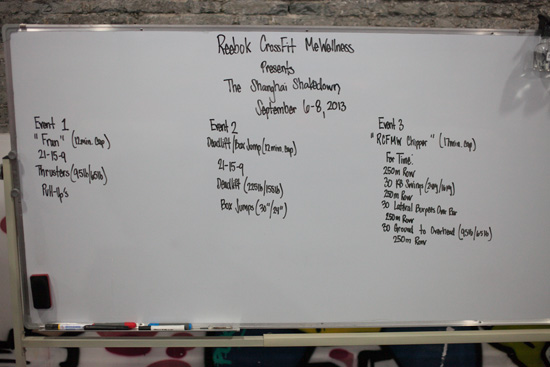 Reebok CrossFit MeWellness
Presents
The Shanghai Shakedown
September 6-8, 2013
Event 1
"Fran" (12min. cap)
21-15-9
Thrusters (95lb/65lb)
Pull-Ups
Event 2
Deadlift/Box Jump (12min. cap)
21-15-9
Deadlift (225lb/155lb)
Box Jumps (30"/24")
Event 3
"RCFMW Chipper" (17min. cap)
For Time:
250m Row
30 KB Swings (24kg/16kg)
250m Row
30 Lateral Burpees Over Bar
250m Row
30 Ground to Overhead (95lb/65lb)
250m Row